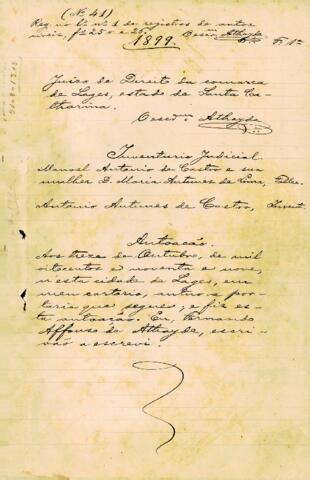 (Nº 41)
Reg. no Lº nº 1 de registros de autos
civeis, fs 25 v. e 26.
1899.
Escrᵐ Athayde
Fl. 1ª
Juizo de Direito da comarca
de Lages, estado de Santa Ca-
tharina.
Athayde
Inventario Judicial.
Manoel Antonio de Castro e sua
mulher D. Maria Antunes de Lima, Fallec.
Antonio Antunes de Castro, Invent.
Autoação.
Aos treze de Outubro, de mil
oitocentos e noventa e nove,
n'esta cidade de Lages, em
meu cartorio, autuo a por-
taria que segue; e fiz es-
ta autoação. Eu, Fernando
Affonso de Athayde, escri-
vão a escrevi.